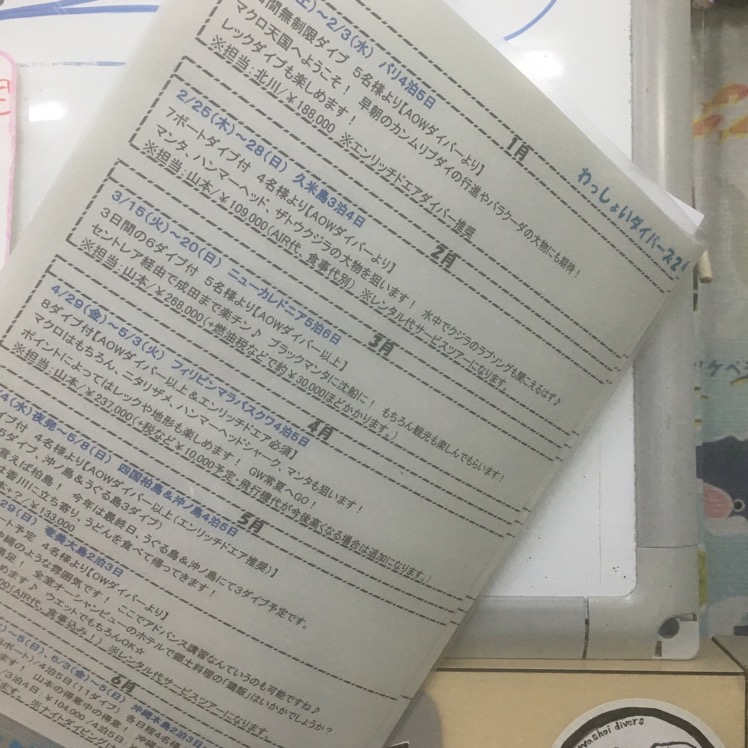 わっしょいダイバーズ2
1月
土)～2/3(水) バリ4泊5日
日間無制限ダイブ 5名様より【AOWダイバーより】
マクロ天国へようこそ! 早朝のカンムリブダイの行進やバラクーダの大物にも期待!
レックダイブも楽しめます!
※担当:北川/¥188,000 ※エンリッチドエアダイバー推奨
2月
2/25(木)～28(日) 久米島3泊4日
7ボートダイブ付 4名様より【AOWダイバーより】
マンタ、ハンマーヘッド、ザトウクジラの大物を狙います! 水中でクジラのラブソングも聞こえるはず♪
※担当:山本/¥109,000(AIR代、食事代別) ※レンタル代サービスツアーになります。
3月
3/15(火)～20(日) ニューカレドニア5泊6日
3日間の6ダイブ付 5名様より【AOWダイバー以上】
セントレア経由で成田まで楽チン♪ ブラックマンタに沈船に! もちろん観光も楽しんでもらいます!
※担当:山本/¥268,000(+燃油税などで約¥30,000ほどかかります。)
4月
4/29(金)～5/3(火) フィリピンマラパスクワ4泊5日
8ダイブ付【AOWダイバー以上&エンリッチドエア必須】
マクロはもちろん、ニタリザメ、ハンマーヘッドシャーク、マンタも狙います!
ポイントによってはレックや地形も楽しめます! GW常夏へGO!
※担当:山本/¥237,000(+税など¥10,000予定・飛行機代が今後高くなる場合は追加になります。)
5月
4(水)夜発～5/8(日) 四国柏島&沖ノ島4泊5日
イブ付 4名様より【AOWダイバー以上(エンリッチドエア推奨)】
5ダイブ、沖ノ島&うぐる島3ダイブ)
言えば柏島! 今年は最終日、うぐる島&沖ノ島にて3ダイブ予定です。
香川に立ち寄り うどんを食べて帰ってきます!
¥133,000
29(日) 奄美大島2泊3日
ート予定 4名様より【OWダイバーより】
縄のような雰囲気です! ここでアドバンス講習なんていうのも可能ですね♪
満足! 全室オーシャンビューのホテルで郷土料理の「鶏飯」はいかがでしょうか?
めます! ウエットでもちろんOK☆
00(AIR代、食事込み!) ※レンタル代サービスツアーになります。
6月
～5(日)、6/3(金)～5(日) 沖縄本島2泊3日
ボート)/4泊5日(11ダイブ) 各日程4名様
ます! 山本の得意中の得意!
/3泊4日:¥104,000/4泊5日
※ナイトダイビング
washoi divers